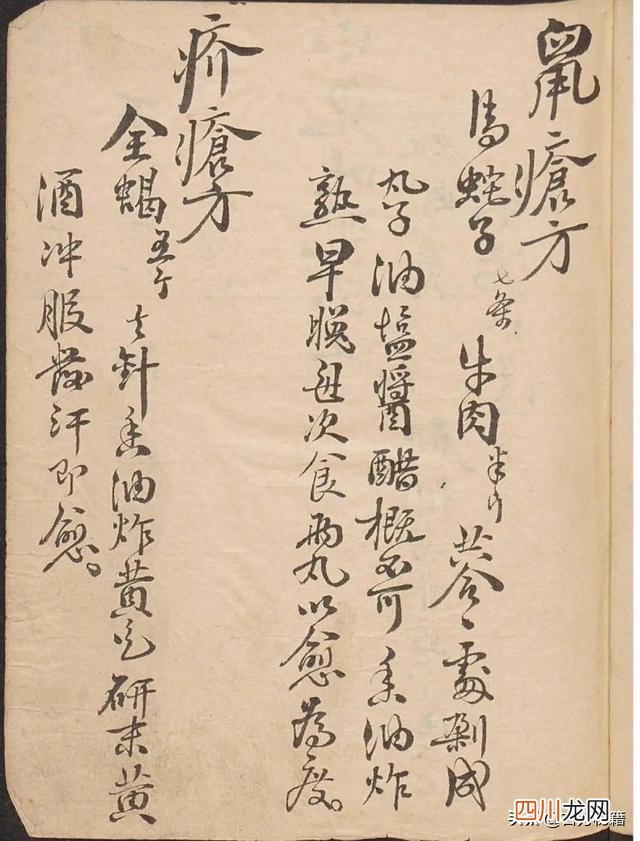 鼠瘡方
馬蛇子七条 牛肉半斤 共合一處剁成
丸子油塩醬醋概不可香油炸
熟早晚每次食兩丸以愈為度。
疥瘡方
全蝎五个 去針香油炸黄色研末黄
酒冲服發汗即愈。
四川龙网